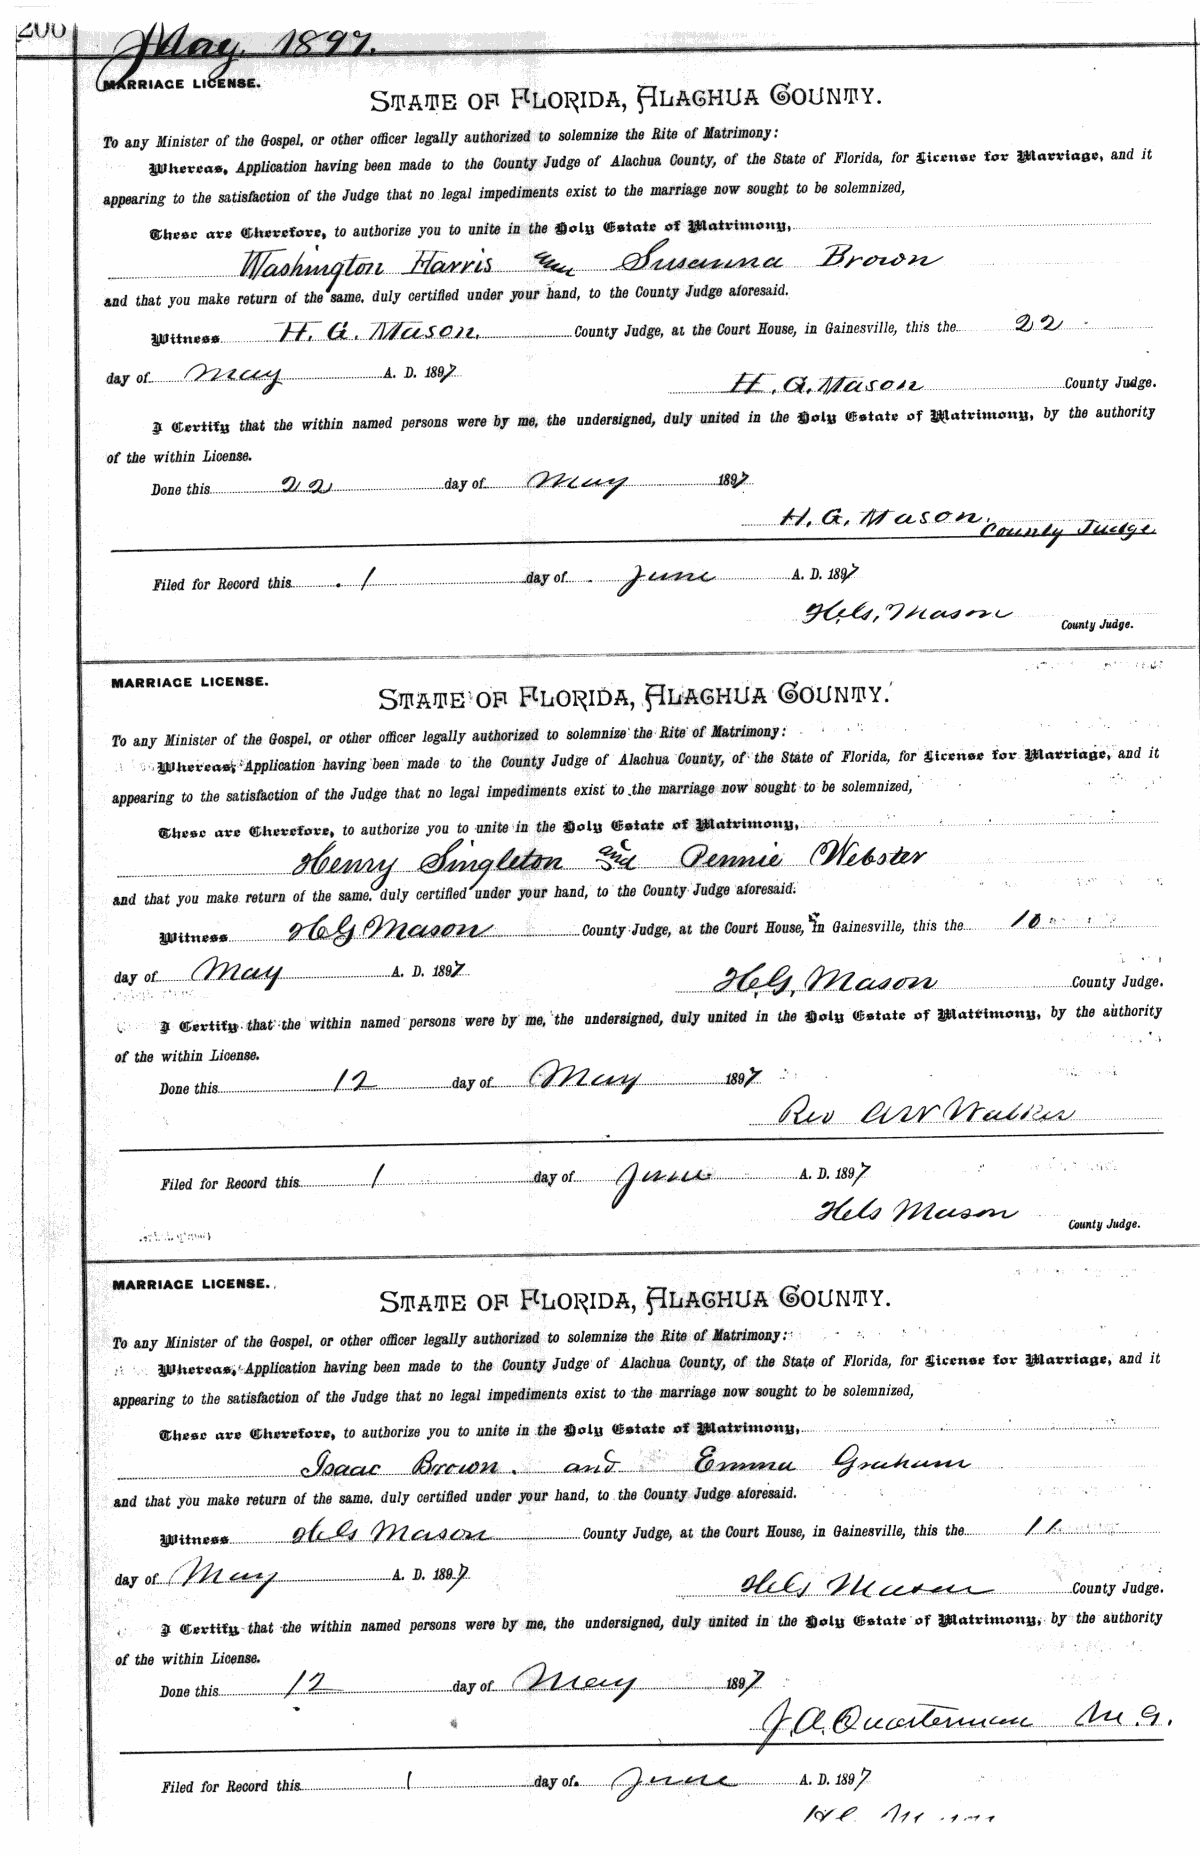 206
May, 1897.
MARRIAGE LICENSE.
STATE OF FLORIDA, ALACHUA COUNTY.
To any Minister of the Gospel, or other officer legally authorized to solemnize the Rite of Matrimony:
Whereas, Application having been made to the County Judge of Alachua County, of the State of Florida, for License for Marriage, and it
appearing to the satisfaction of the Judge that no legal impediments exist to the marriage now sought to be solemnized,
These are Therefore, to authorize you to unite in the Holy Estate of Matrimony,
Washington Harris and Susanna Brown
and that you make return of the same, duly certified under your hand, to the County Judge aforesaid.
Witness H. G. Mason. County Judge, at the Court House, in Gainesville, this the 22
day of May A. D. 1897
H. G. Mason County Judge.
I Certify that the within named persons were by me, the undersigned, duly united in the Holy Estate of Matrimony, by the authority
of the within License.
Done this 22 day of May 1897
H. G. Mason. County Judge.
Filed for Record this 1 day of June A. D. 1897
H.G. Mason
County Judge.
MARRIAGE LICENSE.
STATE OF FLORIDA, ALACHUA COUNTY.
To any Minister of the Gospel, or other officer legally authorized to solemnize the Rite of Matrimony:
Whereas, Application having been made to the County Judge of Alachua County, of the State of Florida, for License for Marriage, and it
appearing to the satisfaction of the Judge that no legal impediments exist to the marriage now sought to be solemnized,
These are Therefore, to authorize you to unite in the Holy Estate of Matrimony,
Henry Singleton and Pennie Webster
and that you make return of the same, duly certified under your hand, to the County Judge aforesaid.
Witness H G Mason County Judge, at the Court House, in Gainesville, this the 10
day of May A. D. 1897
H.G. Mason County Judge.
I Certify that the within named persons were by me, the undersigned, duly united in the Holy Estate of Matrimony, by the authority
of the within License.
Done this 12 day of May 1897
Rev A W Walker
Filed for Record this 1 day of June A. D. 1897
H G Mason
County Judge.
MARRIAGE LICENSE.
STATE OF FLORIDA, ALACHUA COUNTY.
To any Minister of the Gospel, or other officer legally authorized to solemnize the Rite of Matrimony:
Whereas, Application having been made to the County Judge of Alachua County, of the State of Florida, for License for Marriage, and it
appearing to the satisfaction of the Judge that no legal impediments exist to the marriage now sought to be solemnized,
These are Therefore, to authorize you to unite in the Holy Estate of Matrimony,
Isaac Brown. and Emma Graham
and that you make return of the same, duly certified under your hand, to the County Judge aforesaid.
Witness H G Mason County Judge, at the Court House, in Gainesville, this the 11
day of May A. D. 1897
H G Mason County Judge.
I Certify that the within named persons were by me, the undersigned, duly united in the Holy Estate of Matrimony, by the authority
of the within License.
Done this 12 day of May 1897
J A. Quarterman M. G.
Filed for Record this 1 day of June A. D. 1897